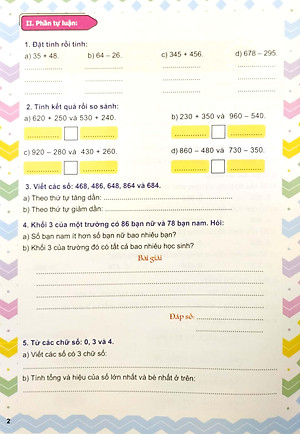 II. Phần tự luận:
1. Đặt tính rồi tính:
a) 35 + 48. b) 64 – 26. c) 345 + 456. d) 678 – 295.
2. Tính kết quả rồi so sánh:
a) 620 + 250 và 530 + 240. b) 230 + 350 và 960 – 540.
c) 920 – 280 và 430 + 260. d) 860 – 480 và 730 – 350.
3. Viết các số: 468, 486, 648, 864 và 684.
a) Theo thứ tự tăng dần:
b) Theo thứ tự giảm dần:
4. Khối 3 của một trường có 86 bạn nữ và 78 bạn nam. Hỏi:
a) Số bạn nam ít hơn số bạn nữ bao nhiêu bạn?
b) Khối 3 của trường đó có tất cả bao nhiêu học sinh?
Bài giải
Đáp số:
5. Từ các chữ số: 0, 3 và 4.
a) Viết các số có 3 chữ số:
b) Tính tổng và hiệu của số lớn nhất và bé nhất ở trên:
2